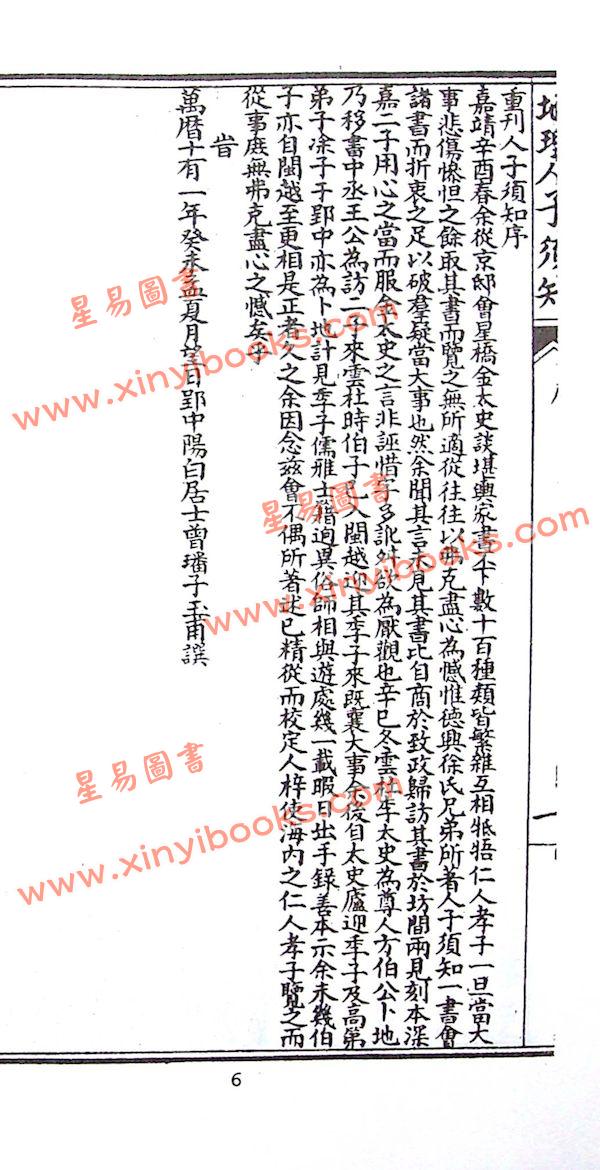 地理人子須知
重刊人子須知序
嘉靖辛酉春余從京邸會星橋金太史談堪輿家書不下數十百種類皆繁雜互相牴牾仁人孝子一旦當大
事悲傷慘怛之餘取其書而覽之無所適從往往以弗克盡心為憾惟德興徐氏兄弟所著人子須知一書會
諸書而折衷之足以破羣疑當大事也然余聞其言未見其書比自商於致政歸訪其書於坊間兩見刻本深
嘉二子用心之當而服金太史之言非誣惜字多訛舛欲為厭觀也辛巳冬雲杜李太史為尊人方伯公卜地
乃移書中丞王公為訪二子來雲杜時伯子已入閩越迎其季子來既襄大事余後自太史廬迎季子及高弟
弟子凃子于郢中亦為卜地計見季子儒雅士籍迥異俗師相與遊處幾一載暇日出手錄善本示余未幾伯
子亦自閩越至更相是正者久之余因念茲會不偶所著述已精從而校定入梓使海內之仁人孝子覽之而
從事庶無弗克盡心之憾矣乎
旹
萬曆十有一年癸未孟夏月望日郢中陽白居士曾璠子玉甫譔
星易圖書
www.xinyibooks.com
星易圖書
www.xinyibooks.com
星易圖書
www.xinyibooks.com
6